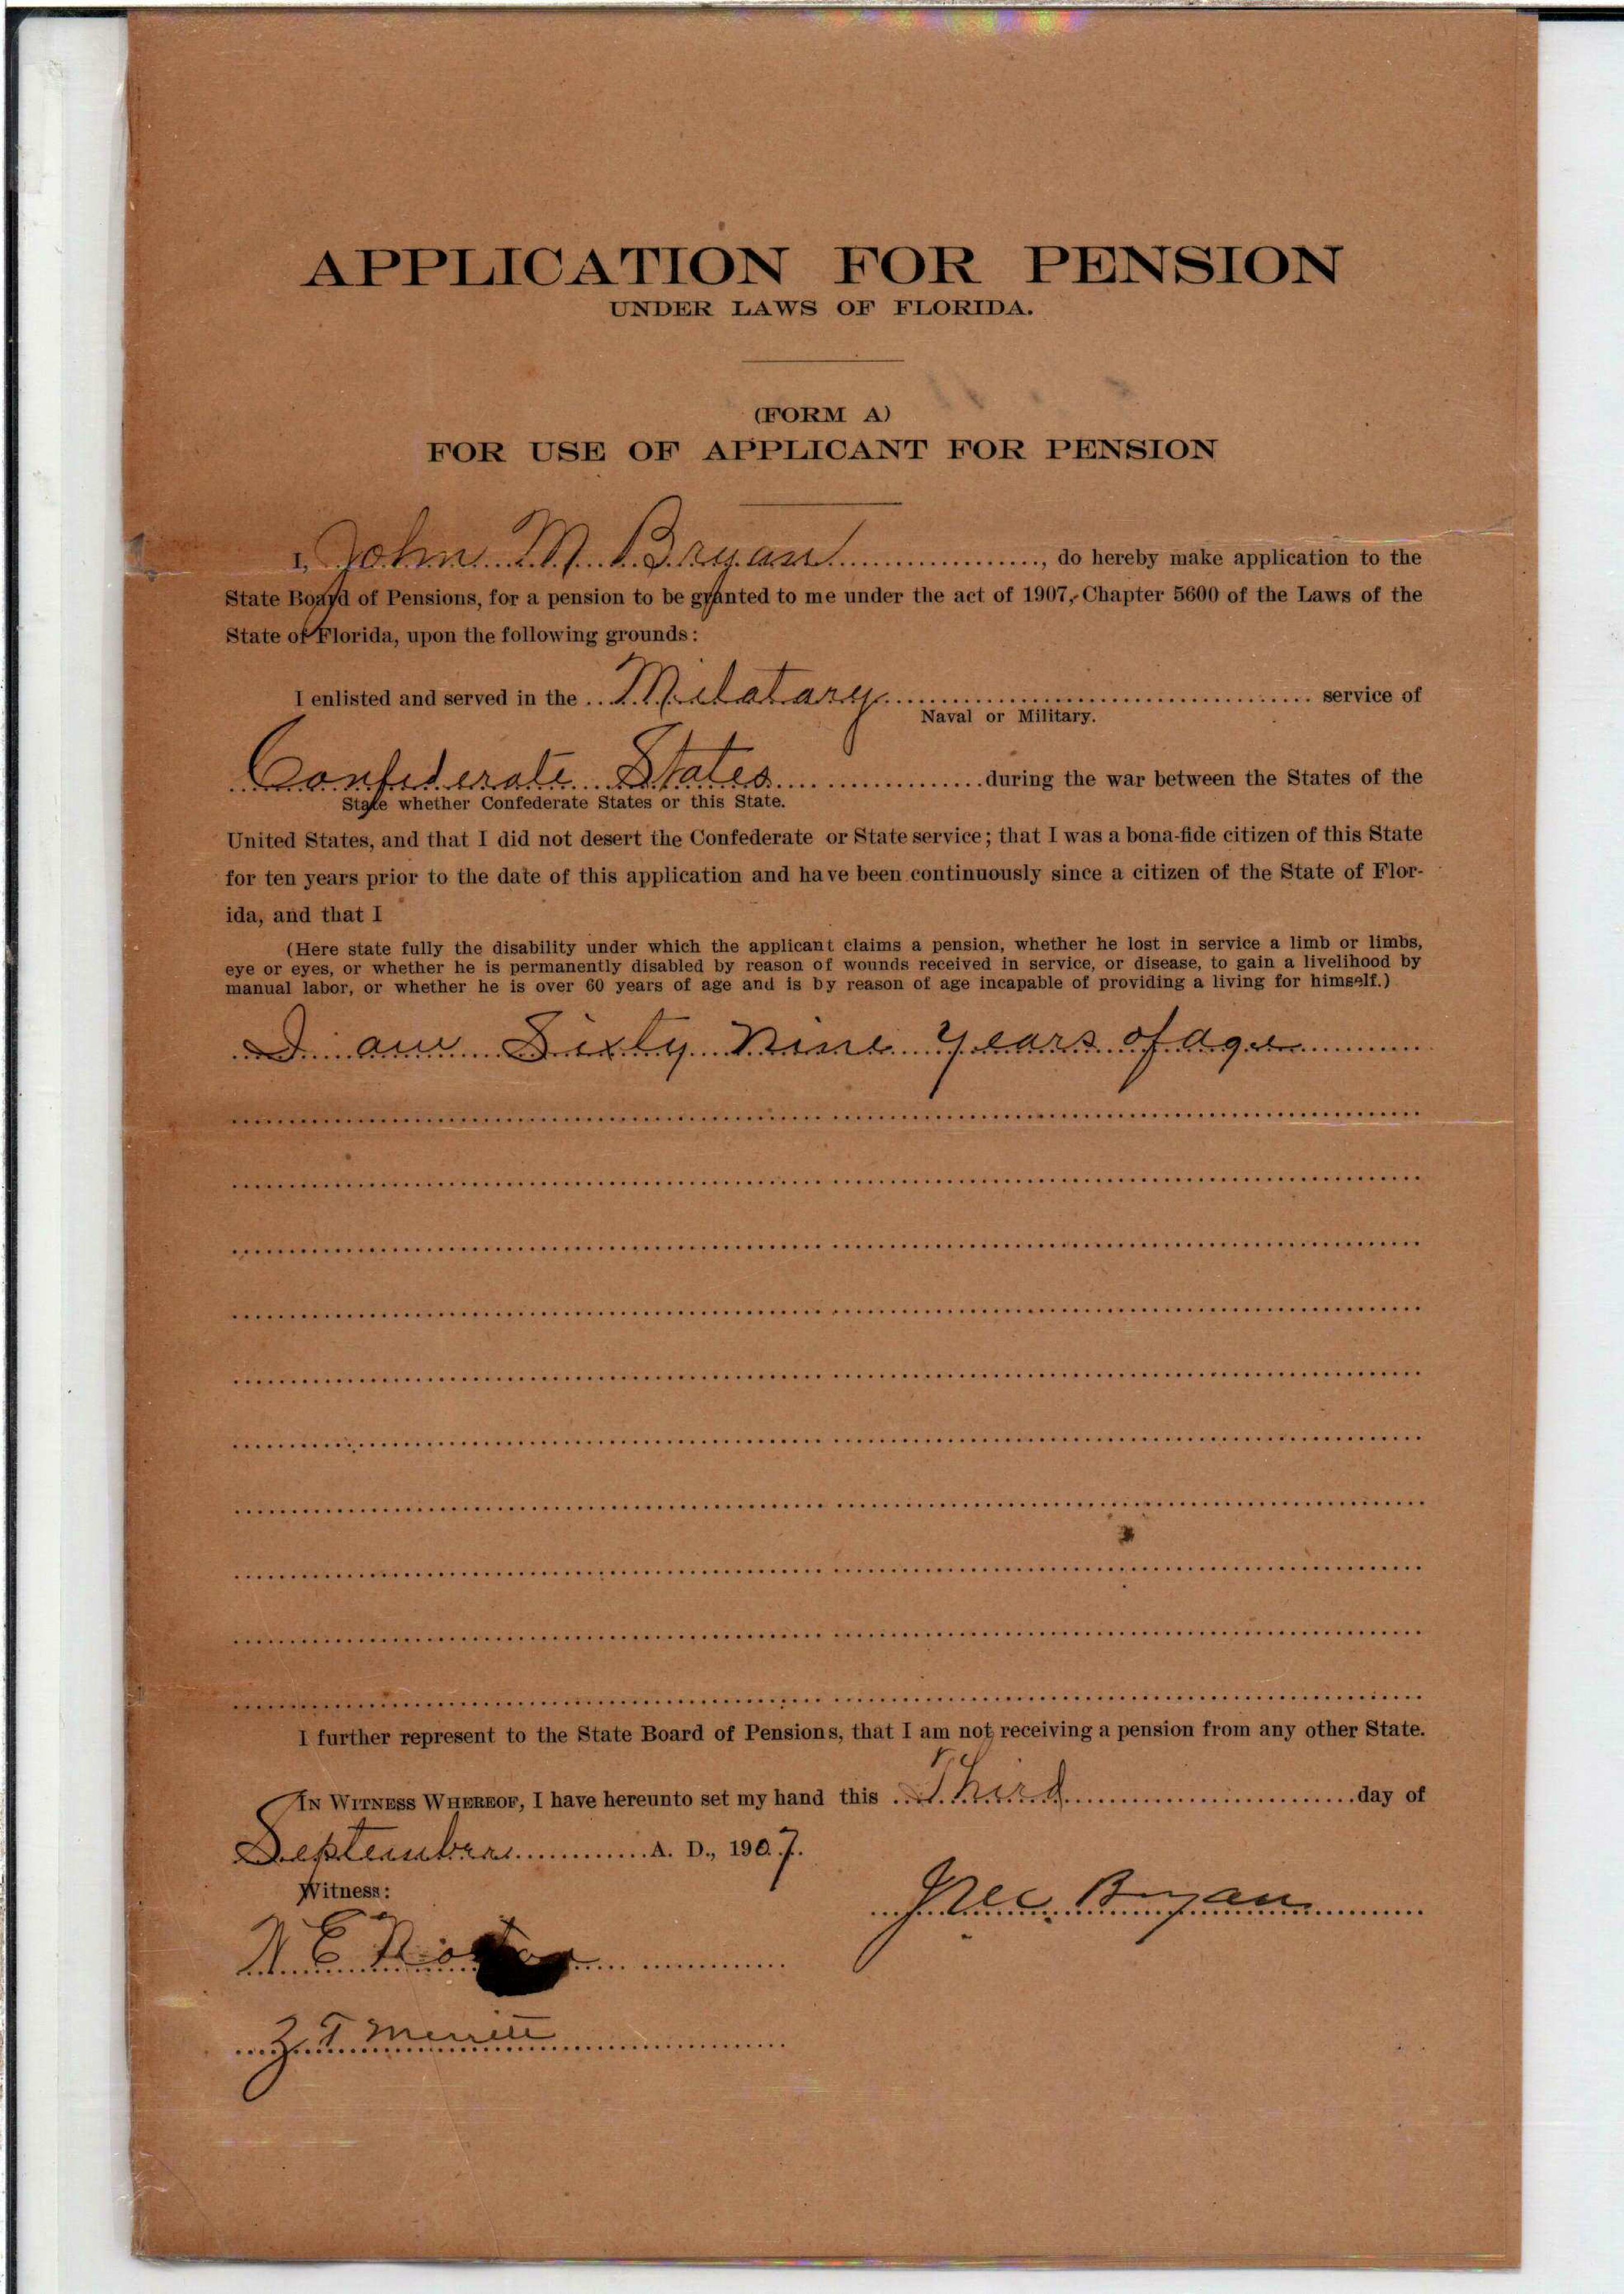 APPLICATION FOR PENSION
UNDER LAWS OF FLORIDA.
(FORM A)
FOR USE OF APPLICANT FOR PENSION
I, John M. Bryan, do hereby make application to the
State Board of Pensions, for a pension to be granted to me under the act of 1907, Chapter 5600 of the Laws of the
State of Florida, upon the following grounds:
I enlisted and served in the Milatary service of
Naval or Military.
Confederate States during the war between the States of the
State whether Confederate States or this State.
United States, and that I did not desert the Confederate or State service; that I was a bona-fide citizen of this State
for ten years prior to the date of this application and have been continuously since a citizen of the State of Flor-
ida, and that I
(Here state fully the disability under which the applicant claims a pension, whether he lost in service a limb or limbs,
eye or eyes, or whether he is permanently disabled by reason of wounds received in service, or disease, to gain a livelihood by
manual labor, or whether he is over 60 years of age and is by reason of age incapable of providing a living for himself.)
I am Sixty Nine years of age
I further represent to the State Board of Pensions, that I am not receiving a pension from any other State.
IN WITNESS WHEREOF, I have hereunto set my hand this Third day of
September A. D., 1907.
Witness:
Bryan
Z T Merritt